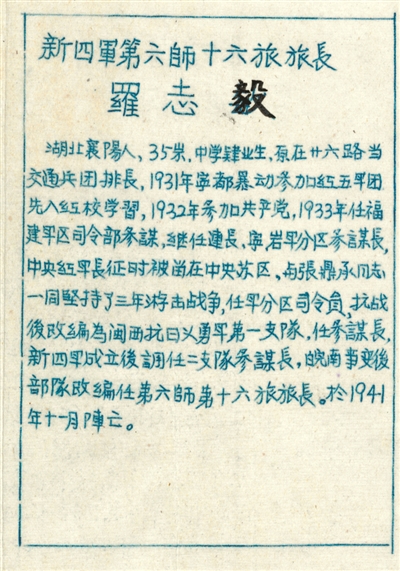 新四軍第六師十六旅旅長
羅志毅
湖北襄陽人，35岁，中学肄业生，原在廿六路当
交通兵团排長，1931年寧都暴动参加紅五軍团
先入紅校学習，1932年参加共产党，1933年任福
建軍区司令部参謀，継任連長、寧岩軍分区参謀長，
中央紅軍長征时被留在中央苏区，与張鼎承同志
一同堅持了三年游击战争，任軍分区司令員，抗战
後改編為闽西抗日义勇軍第一支隊，任参謀長，
新四軍成立後調任二支隊参謀長，皖南事变後
部隊改編任第六師第十六旅旅長。於1941
年十一月陣亡。